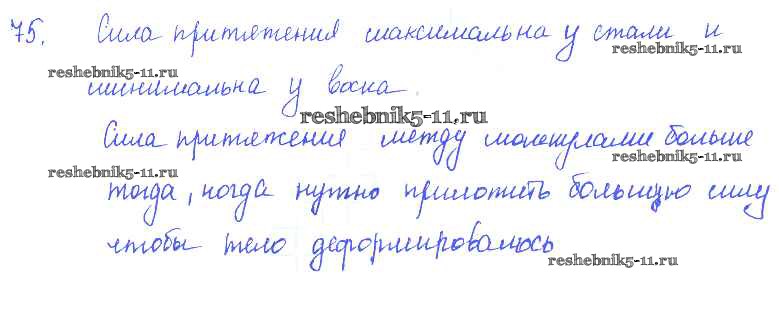 75. Сила притяжения максимальна у стали и
reshebnik5-11.ru
reshebnik5-11.ru
минимальна у воска.
reshebnik5-11.ru
Сила притяжения между молекулами больше
reshebnik5-11.ru
reshebnik5-11.ru
тогда, когда нужно приложить большую силу
чтобы тело деформировалось
reshebnik5-11.ru